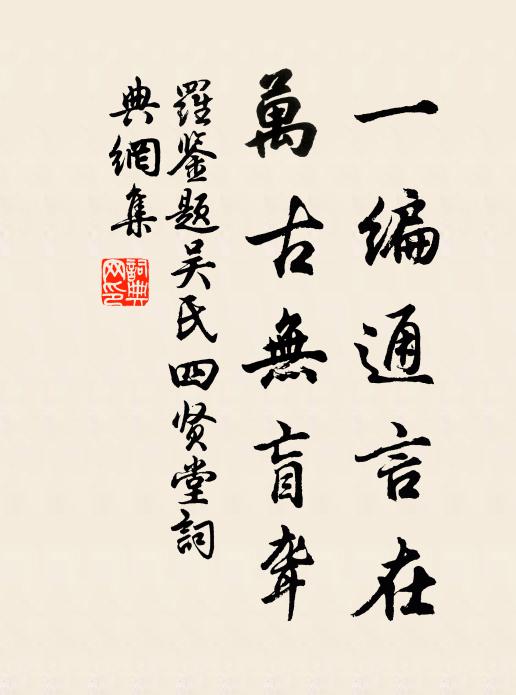 一编通言在
萬古無盲聋
羅鉴题吴氏四贤堂詞
典網集
詞典
网印